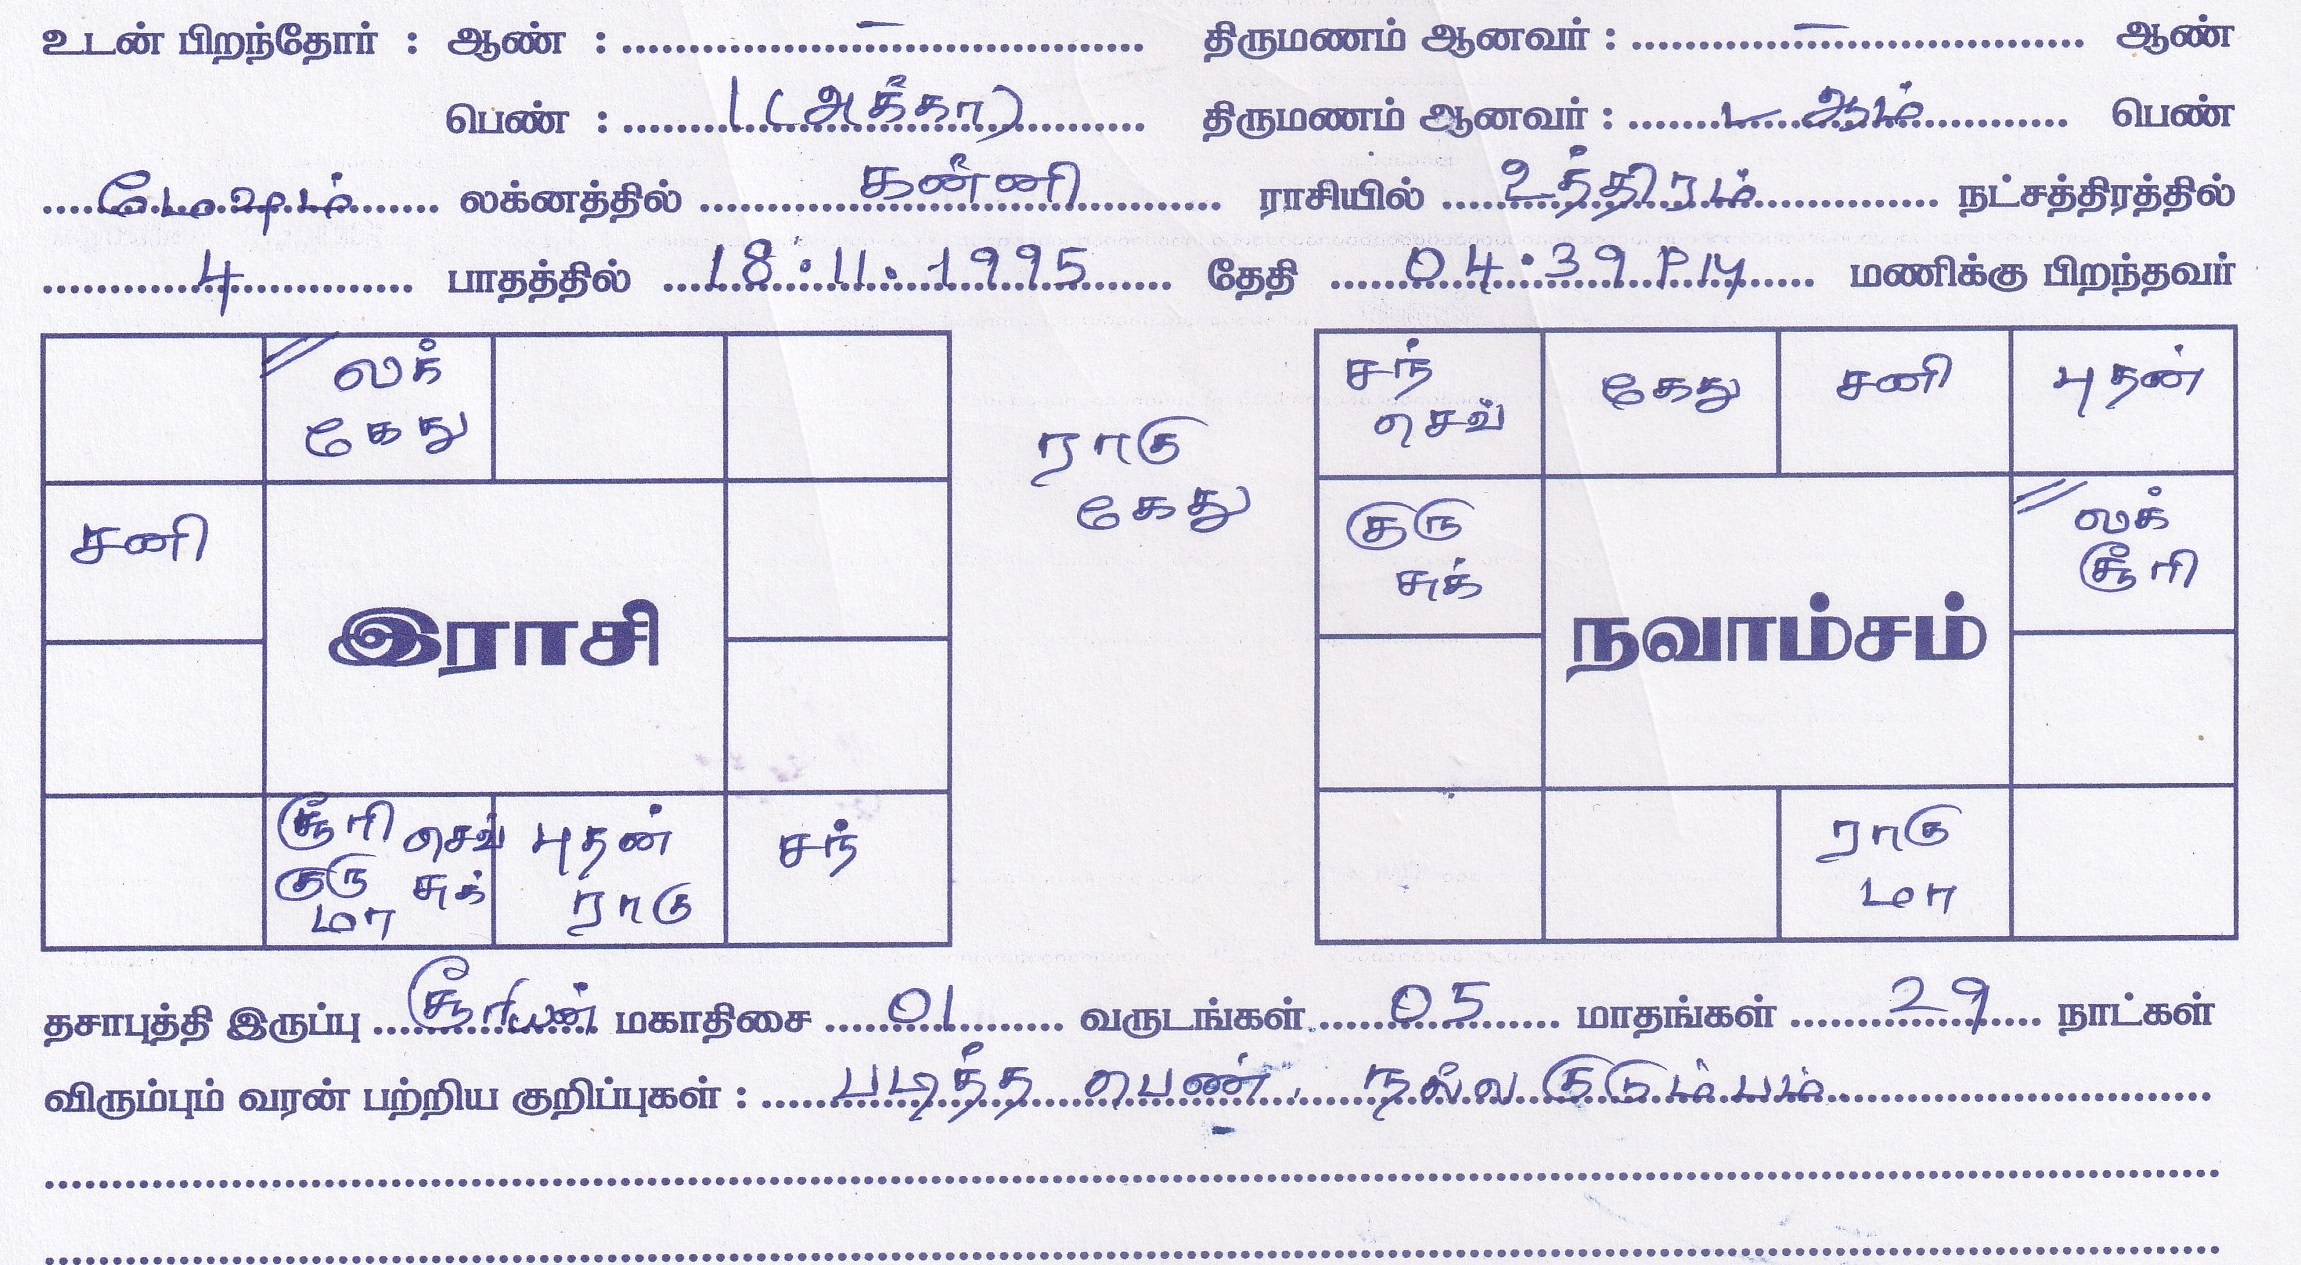 உடன் பிறந்தோர் : ஆண் : – திருமணம் ஆனவர் : – ஆண்
பெண் : 1 (அக்கா) திருமணம் ஆனவர் : ஆம் பெண்
மேஷம் லக்னத்தில் கன்னி ராசியில் உத்திரம் நட்சத்திரத்தில்
4 பாதத்தில் 18.11.1995 தேதி 04.39 PM மணிக்கு பிறந்தவர்
லக்
கேது
சனி
இராசி
சூரி செவ்
குரு சுக்
மா
புதன்
ராகு
சந்
ராகு
கேது
சந்
செவ்
கேது
சனி
புதன்
குரு
சுக்
லக்
சூரி
நவாம்சம்
ராகு
மா
தசாபுத்தி இருப்பு சூரியன் மகாதிசை 01 வருடங்கள் 05 மாதங்கள் 29 நாட்கள்
விரும்பும் வரன் பற்றிய குறிப்புகள் : படித்த பெண், நல்ல குடும்பம்.